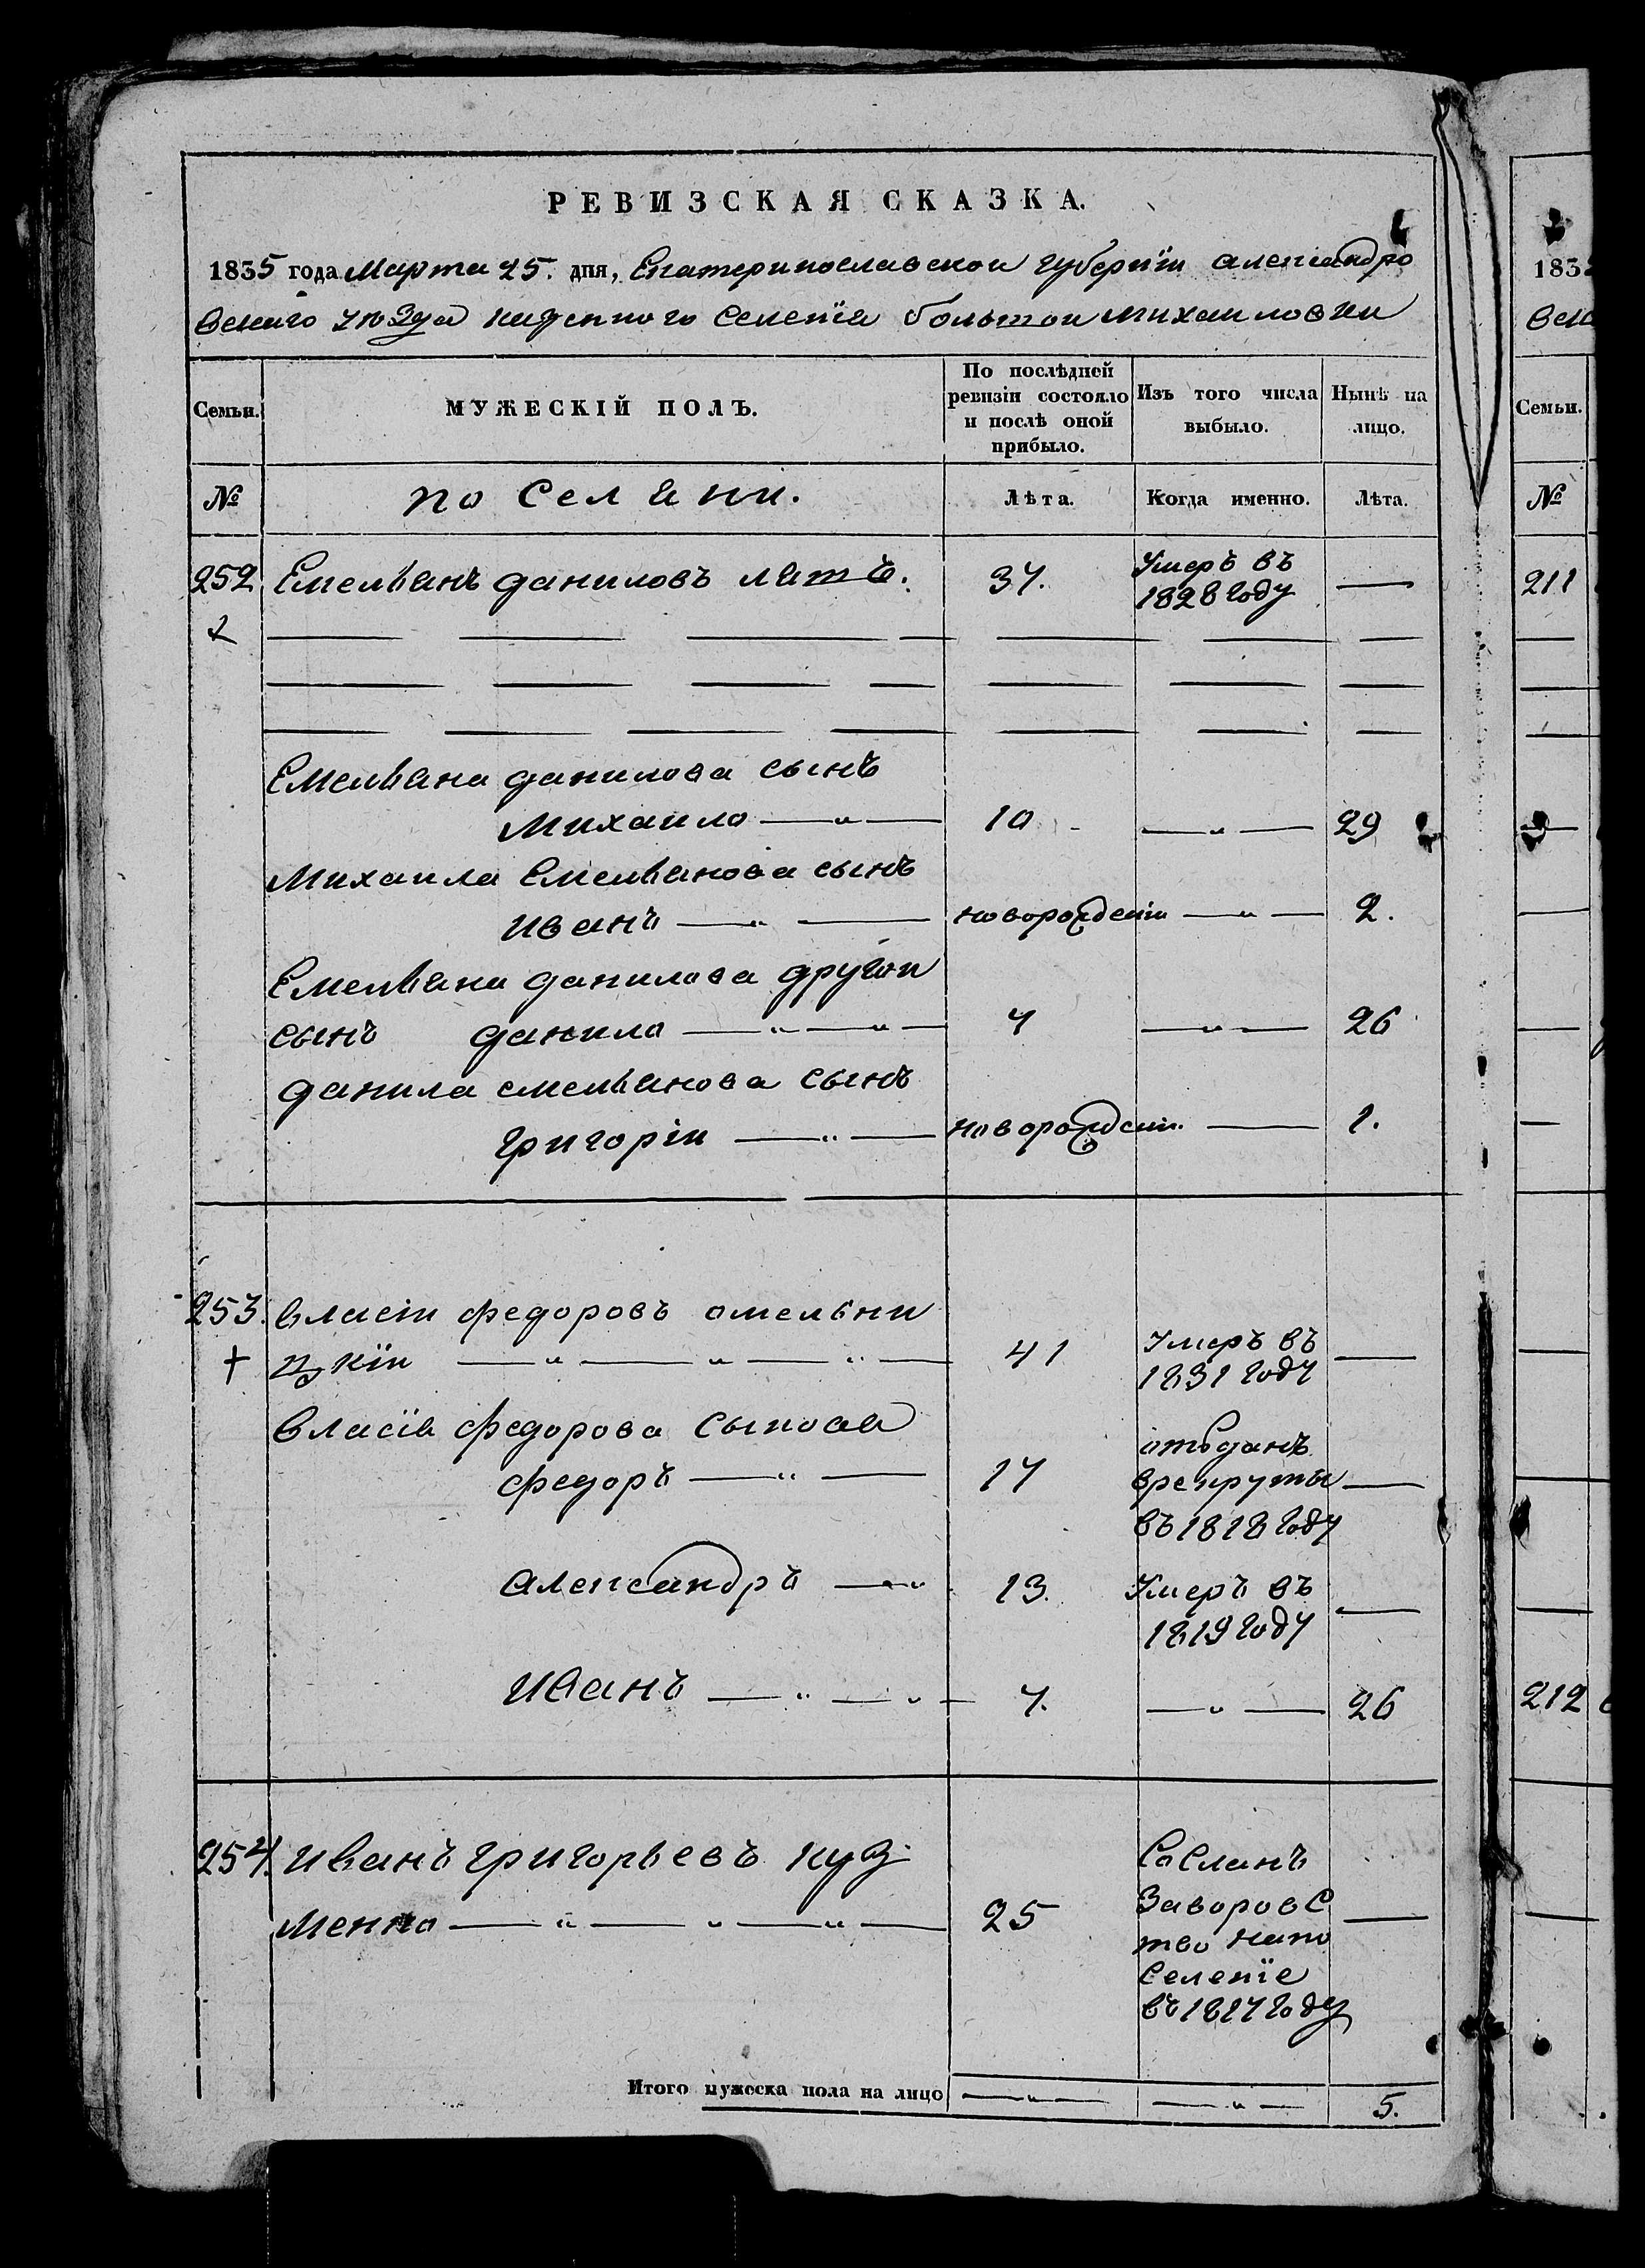 РЕВИЗСКАЯ СКАЗКА.
1835 года Марта 25. дня, Екатеринославскои губернїи александро
вскаго уѣзда казенного селенїя большои михаиловки
Семьи. МУЖЕСКІЙ ПОЛЪ. По послѣдней ревизіи состояло и послѣ оной прибыло. Изъ того числа выбыло. Нынѣ на лицо.
№ поселяни. Лѣта. Когда именно. Лѣта.
252 Емельянъ даниловъ 37. Умеръ въ 1828 году —
Емельяна данилова сынъ
Михаило 10 — 29
Михаила Емельянова сынъ
иванъ новорожденїи — 2.
Емельяна данилова другои
сынъ данило 7 — 26
данила емельянова сынъ
григорїи новорожденїи — 1.
253. власїи федоровъ омельни
цкїи 41 Умеръ въ 1831 году —
власїя федорова сыновя
федоръ 17 отъданъ врекруты въ 1818 году —
александръ 13. Умеръ въ 1819 году —
иванъ 7. — 26
254. иванъ григорьевъ куз
менко 25 Сосланъ Заворовс тво напо Селенїе въ 1817 году —
Итого мужеска пола на лицо — — 5.
1835
вска
Семьи.
№
211
212